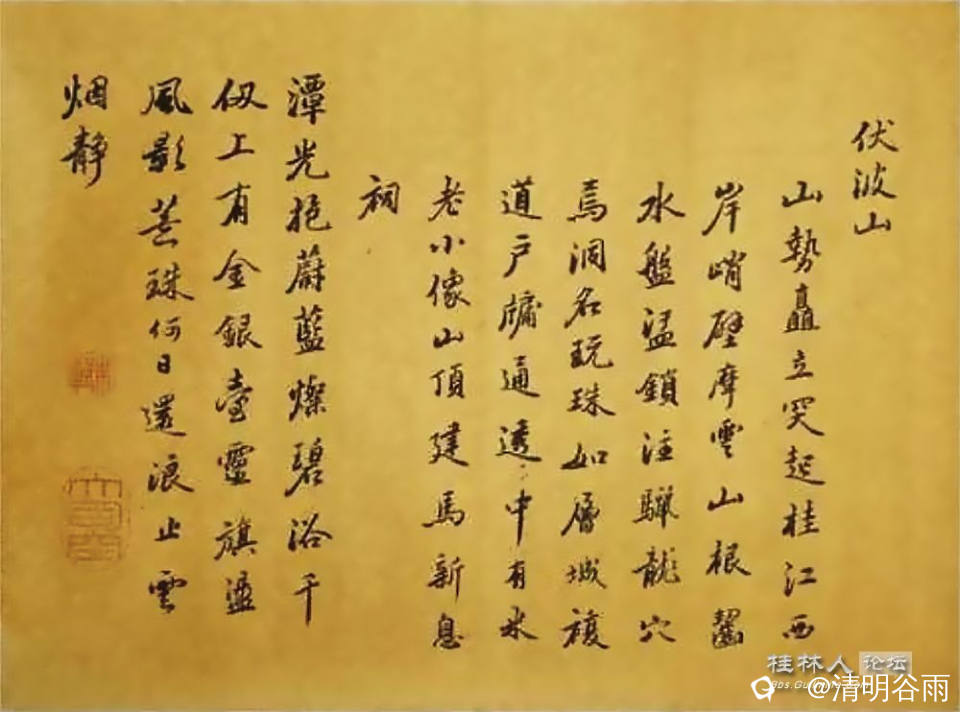 伏波山
山勢矗立突起桂江西
岸峭壁摩雲山根齧
水盤盓鎖注驪龍穴
焉洞名玩珠如層城複
道戶牖通透中有米
老小像山頂建馬新息
祠
潭光抱蔚藍燦碧浴千
仭上有金銀臺靈旗盪
風影荒珠何日還浪止雲
烟静
桂林人论坛
@清明谷雨